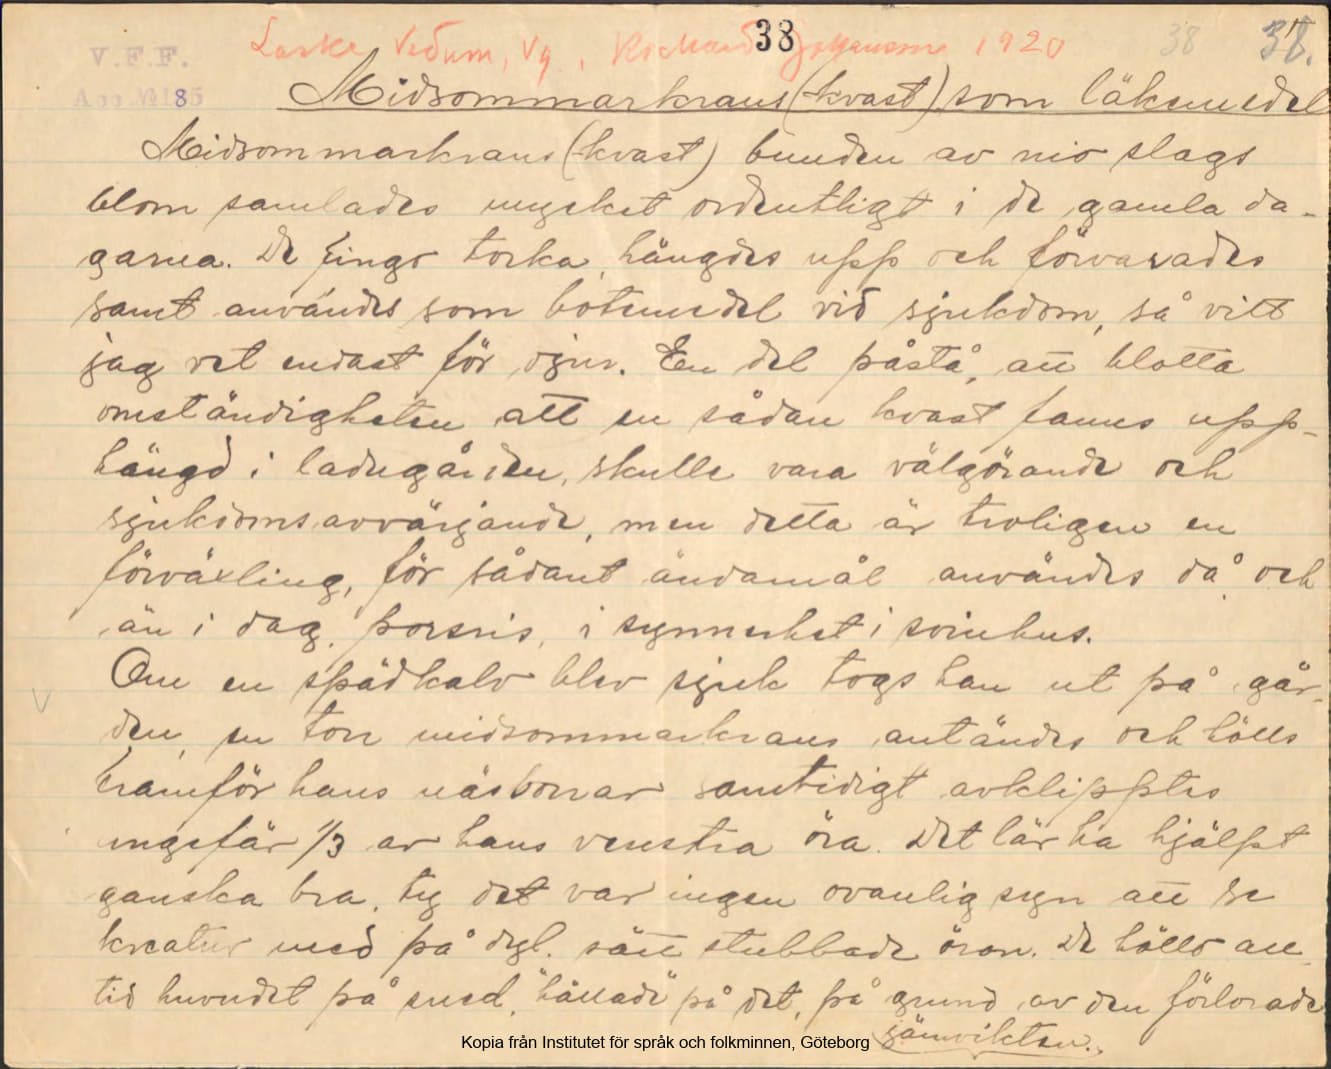 V.F.F.
Acc. № 185
38
38
38.
Laske Vedum, Vg., Richard Johansson 1920
Midsommarkrans (-kvast) som läkemedel
Midsommarkrans (-kvast) bunden av nio slags
blom samlades mycket ordentligt i de gamla da-
garna. De fingo torka, hängdes upp och förvarades
samt användes som botemedel vid sjukdom, så vitt
jag vet endast för djur. En del påstå, att blotta
omständigheten att en sådan kvast fanns upp-
hängd i ladugården, skulle vara välgörande och
sjukdomsavvärjande, men detta är troligen en
förväxling, för sådant ändamål användes då och
än i dag, porsris, i synnerhet i svinhus.
Om en spädkalv blev sjuk togs han ut på går-
den, en torr midsommarkrans antändes och hölls
framför hans näsborrar samtidigt avklipptes
ungefär 1/3 av hans venstra öra. Det lär ha hjälpt
ganska bra, ty det var ingen ovanlig syn att se
kreatur med på dyl. sätt stubbade öron. De höllo all-
tid huvudet på sned, "hällade" på det, på grund av den förlorade
jämvikten.
Kopia från Institutet för språk och folkminnen, Göteborg